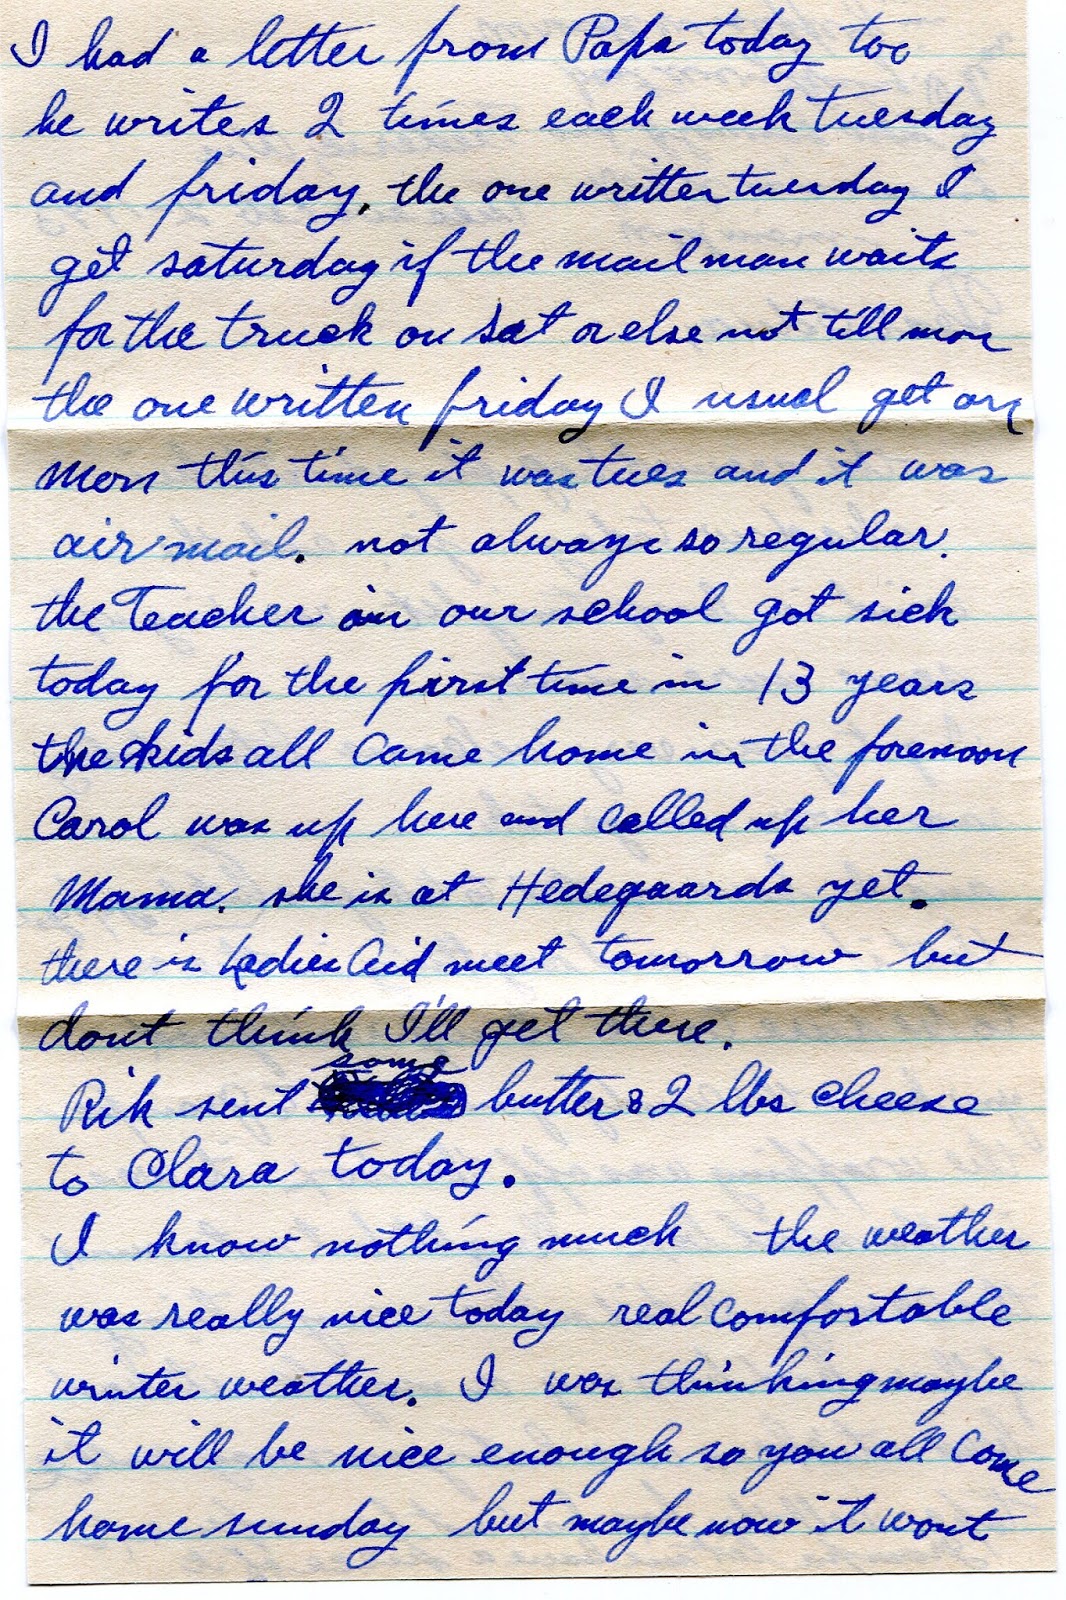 I had a letter from Papa today too
he writes 2 times each week tuesday
and friday, the one written tuesday I
get saturday if the mail man waits
for the truck on Sat or else not till mon
the one written friday I usual get on
Mon this time it was tues and it was
air mail. not always so regular.
the Teacher in our school got sick
today for the first time in 13 years
the kids all came home in the forenoon
Carol was up here and called up her
Mama. she is at Hedegaards yet.
there is Ladies Aid meet tomorrow but
dont think I'll get there.
some
Rik sent butter & 2 lbs cheese
to Clara today.
I know nothing much the weather
was really nice today real comfortable
winter weather. I was thinking maybe
it will be nice enough so you all come
home sunday but maybe now it wont